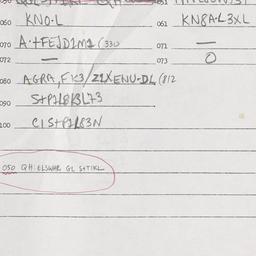 060 KNO·L 061 KN8A·L3XL
070 A·+FEJDIM1 (330 071 —
072 — 073 O
080 AGRA, FK3/Z1XENU·DL (812
090 S+P1L8K3L73
100 CIS+P1L63N
050 QH: ELSWHR GL S+TIKL